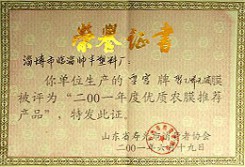 荣誉证书
淄博市临淄帅丰塑料厂:
你单位生产的 牌
被评为"二00一年度优质农膜推荐
产品",特发此证。
山东省寿光 者协会
二00一年六 十九日